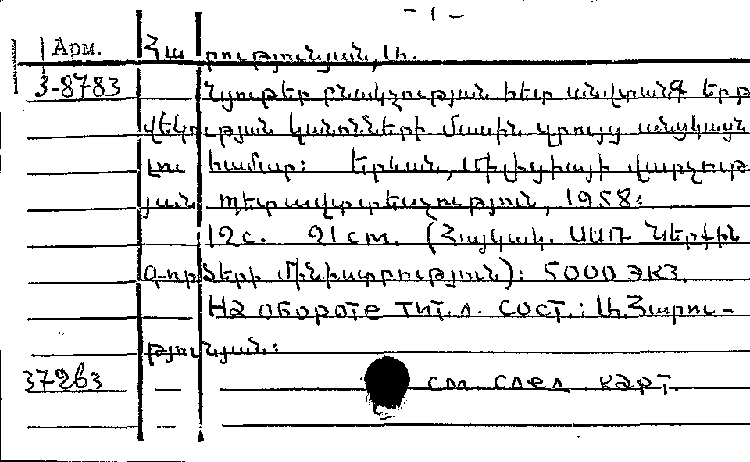 - 1 -
Арм. Հարությունյան, Ս.
3-8783 Նյութեր բնակչության հետ անվտանգ երթ
վեկության կանոնների մասին զրույց անցկացն
լու համար: Երևան, Միլիցիայի վարչութ
յան պետավտոտեսչություն, 1958:
12с. 21см. (Հայկակ. ՍՍՌ Ներքին
գործերի մինիստրություն): 5000 экз.
На обороте тит. л. сост.: Ս. Հարու-
թյունյան:
37263 см. след. карт.